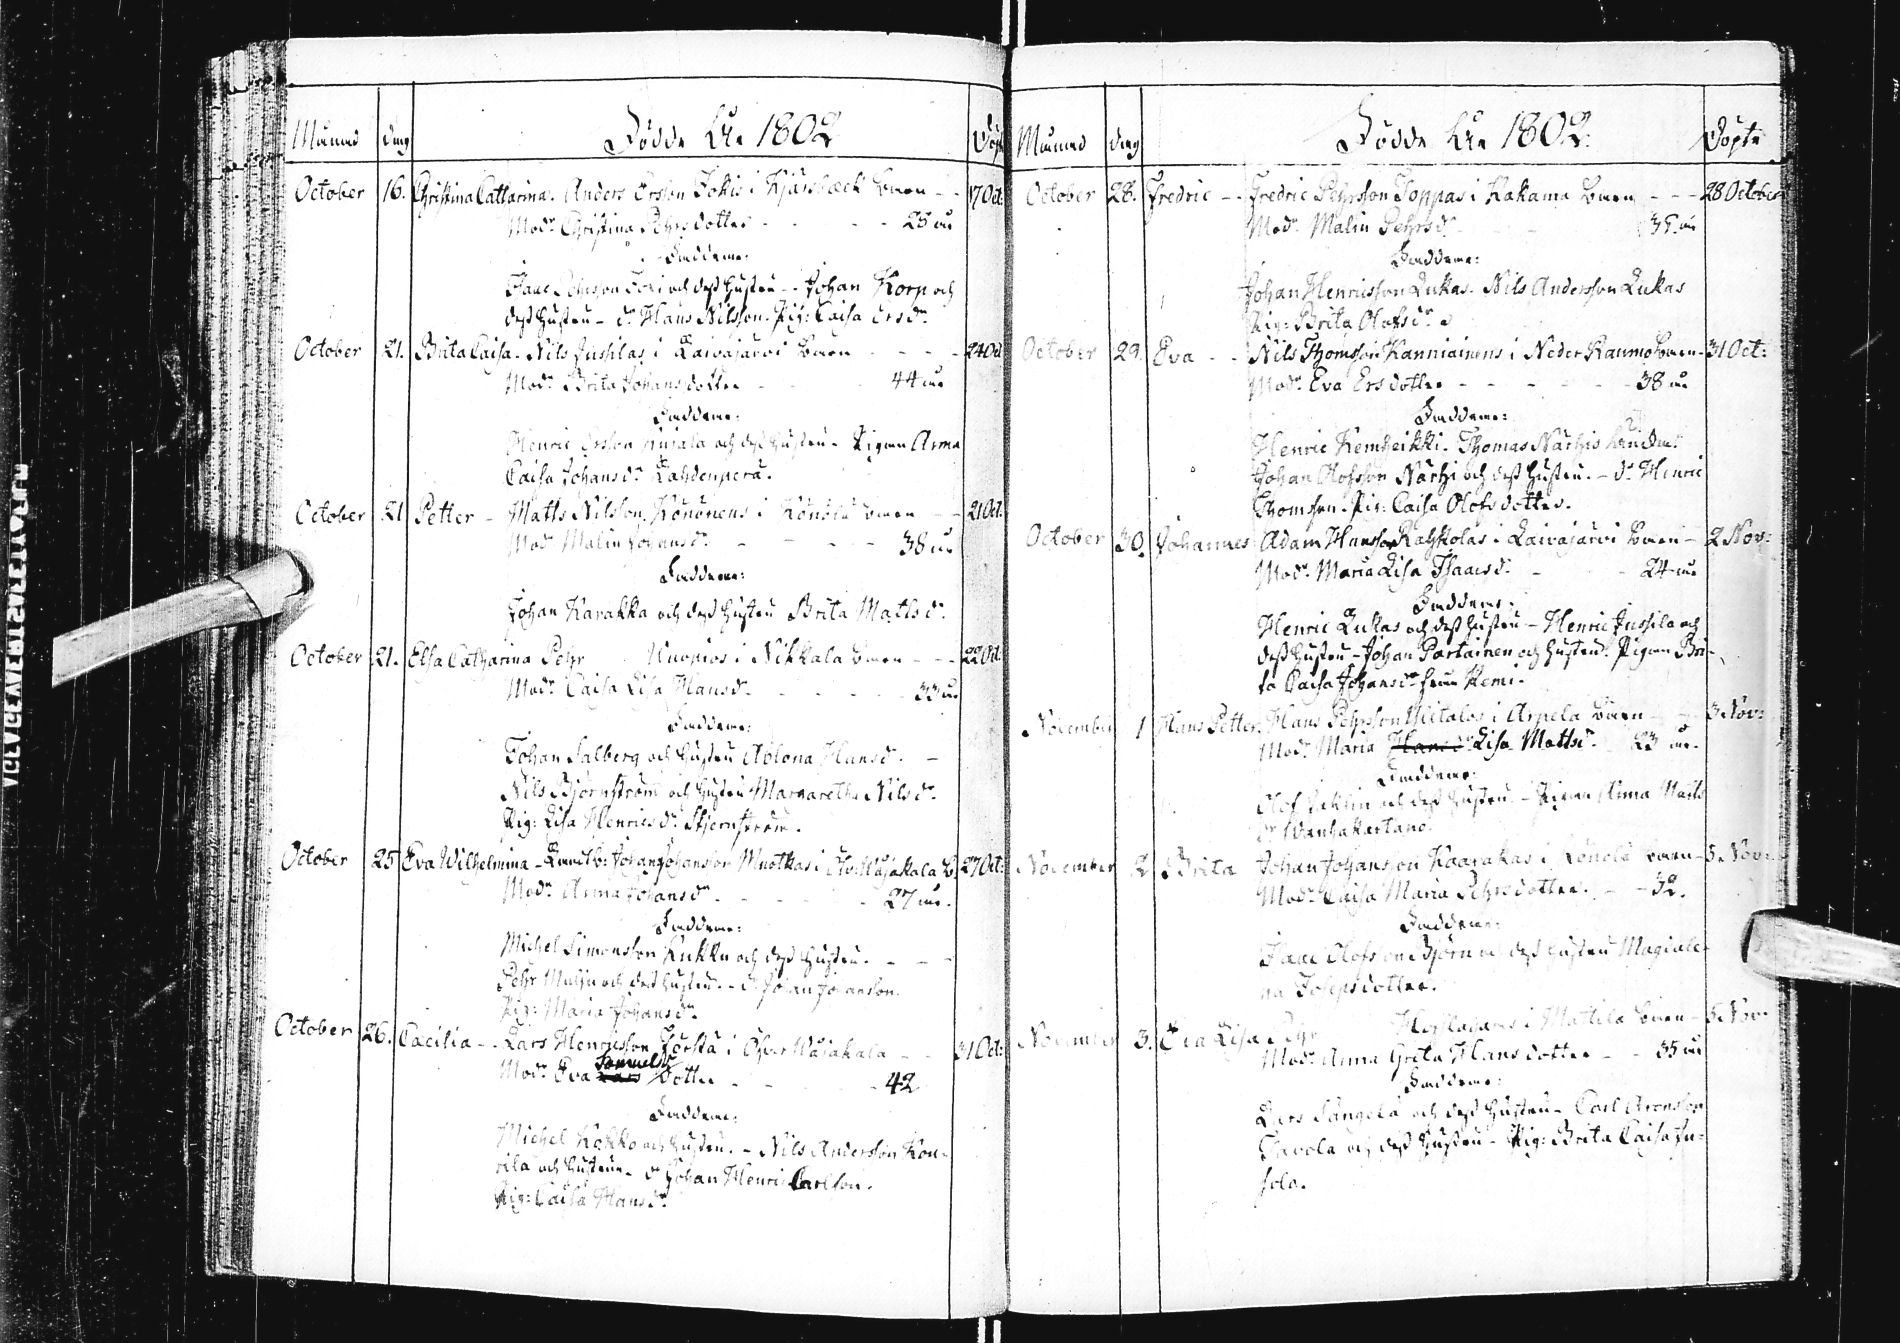 Månad dag Födde År 1802 Döpt
October 16. Christina Catharina. Anders Ersson Jokis i Kjärsbäck barn - - 17 Oct.
Modr Christina Pehrsdotter - - - - 25 år
Faddrarne:
Isaac Johnson Joki och dess hustru - - Johan Korp och
dess hustru - dr Hans Nilsson. Pig: Caisa Ersdr
October 21. Brita Caisa - Nils Jussilas i Laivajärvi barn - - - - 24 Oct
Modr Brita Johansdotter - - - 44 år
Faddrarne:
Henric Ersson och dess hustru - Pigan Anna
Caisa Johansdr Lahdenperä.
October 21 Petter - Matts Nilsson Könönens i Könölä barn - - 21 Oct.
Modr Malin Johansdr - - - - 38 år
Faddrarne:
Johan Karakka och dess hustru Brita Mattsdr
October 21. Elsa Catharina Pehr Kuopios i Nikkala barn - - - 22 Oct.
Modr Caisa Lisa Hansdr - - - - 33 år
Faddrarne:
Johan Salberg och hustru Ablona Hansdr. -
Nils Björnström och hustru Margaretha Nilsdr
Pig: Lisa Henricsdr Stjernström.
October 25 Eva Wilhelmina - Johan Johansson Muotkas i Öfv: Wojakala b. 27 Oct:
Modr Anna Johansdr - - - - 27 år.
Faddrarne:
Michel Simonsson Kukko och dess hustru. - - -
Pehr och dess hustru. - dr Johan Johansson.
Pig: Maria Johansdr
October 26. Cæcilia - - Lars Henricsson i Öfver Wojakala - - 31 Oct:
Samuels
Modr Eva dotter - - - - 42
Faddrarne:
Michel Kokko och hustru. - Nils Andersson Kou-
rila och hustrun - dr Johan Henric Carlson.
Pig: Caisa Hansdr
Månad dag Födde År 1802. Döpte
October 28. Fredric - - Fredric Pehrsson Toppas i Kakama barn - - - 28 October
Modr Malin Pehrsdr 35 år
Faddrarne:
Johan Henricsson Lukas. Nils Andersson Lukas
Pig: Brita Olofsdr
October 29. Eva - - Nils Thomsson Kanniainens i Neder Raumo barn - 31 Oct:
Modr Eva Ersdotter - - - - - 38 år
Faddrarne:
Henric Kemheikki - Thomas Närhis
Johan Olofsson Närhi och dess hustru. - dr Henric
Thomsson. Pig: Caisa Olofsdotter.
October 30. Johannes Adam Hansson Ralhkolas i Laivajärvi barn - 2 Nov:
Modr Maria Lisa Isaacsdr - - - 24 år
Faddrarne:
Henric Lukas och dess hustru - Henric Jussila och
dess hustru - Johan Portainen och hustru. Pigan Bri-
ta Caisa Johansdr från Kemi.
November 1 Hans Petter. Hans Pehrsson Ylitalos i Arpela barn - - 3 Nov:
Modr Maria Hansdr Lisa Mattsdr. 23 år.
Faddrarne:
Olof och dess hustru. - Pigan Anna Matts
dr Wanhakartano.
November 2. Brita Johan Johansson Kaarakas i Könölä barn - 5 Nov:
Modr Caisa Maria Pehrsdotter. - - 32.
Faddrarne:
Isaac Olofsson Björn och dess hustru Magdale-
na Josepsdotter.
November 3. Eva Lisa Pehr i Mattila barn - 5 Nov:
Modr Anna Greta Hansdotter - - 35 år
Faddrarne:
Lars Sångelä och dess hustru - Carl Aronsson
Tavola och dess hustru - Pig: Brita Caisa Ju-
sola.